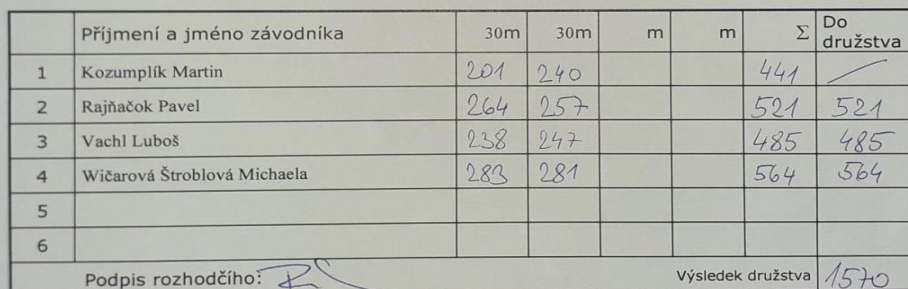 Příjmení a jméno závodníka 30m 30m m m Σ Do družstva
1 Kozumplík Martin 201 240 441
2 Rajňačok Pavel 264 257 521 521
3 Vachl Luboš 238 247 485 485
4 Wičarová Štroblová Michaela 283 281 564 564
5
6
Podpis rozhodčího: Výsledek družstva 1570